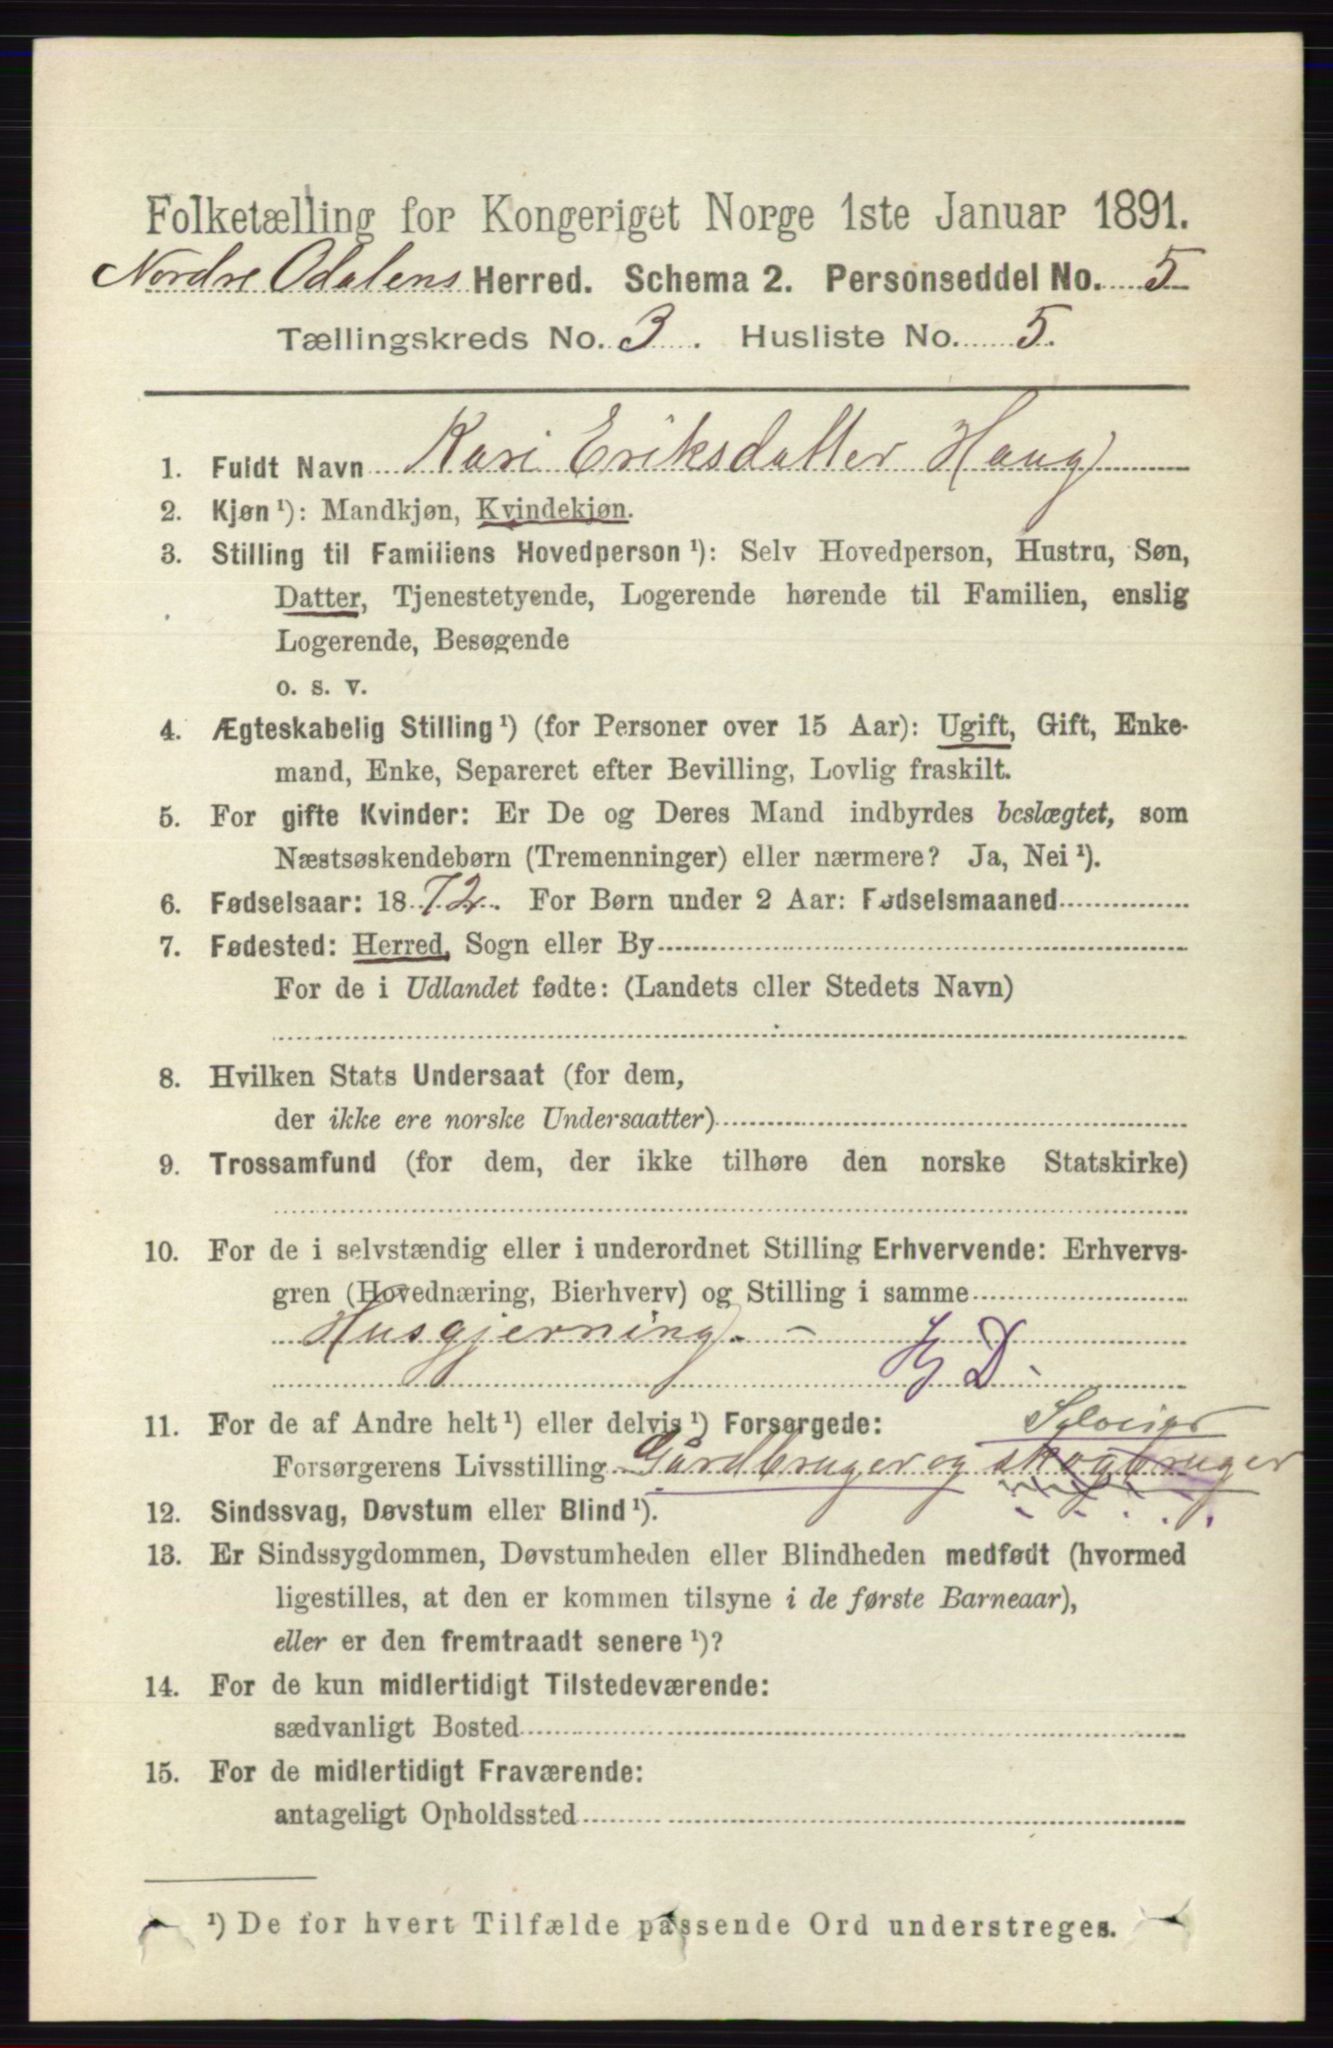 Folketælling for Kongeriget Norge 1ste Januar 1891.
Nordre Odalens Herred. Schema 2. Personseddel No. 5
Tællingskreds No. 3. Husliste No. 5.
1. Fuldt Navn Kari Eriksdatter Haug
2. Kjøn ¹): Mandkjøn, Kvindekjøn.
3. Stilling til Familiens Hovedperson ¹): Selv Hovedperson, Hustru, Søn,
Datter, Tjenestetyende, Logerende hørende til Familien, enslig
Logerende, Besøgende
o. s. v.
4. Ægteskabelig Stilling ¹) (for Personer over 15 Aar): Ugift, Gift, Enke-
mand, Enke, Separeret efter Bevilling, Lovlig fraskilt.
5. For gifte Kvinder: Er De og Deres Mand indbyrdes beslægtet, som
Næstsøskendebørn (Tremenninger) eller nærmere? Ja, Nei ¹).
6. Fødselsaar: 1872. For Børn under 2 Aar: Fødselsmaaned
7. Fødested: Herred, Sogn eller By
For de i Udlandet fødte: (Landets eller Stedets Navn)
8. Hvilken Stats Undersaat (for dem,
der ikke ere norske Undersaatter)
9. Trossamfund (for dem, der ikke tilhøre den norske Statskirke)
10. For de i selvstændig eller i underordnet Stilling Erhvervende: Erhvervs-
gren (Hovednæring, Bierhverv) og Stilling i samme
Husgjerning. –
D.
11. For de af Andre helt ¹) eller delvis ¹) Forsørgede: Selveier
Forsørgerens Livsstilling Gårdbruger og skogbruger
12. Sindssvag, Døvstum eller Blind ¹).
13. Er Sindssygdommen, Døvstumheden eller Blindheden medfødt (hvormed
ligestilles, at den er kommen tilsyne i de første Barneaar),
eller er den fremtraadt senere ¹)?
14. For de kun midlertidigt Tilstedeværende:
sædvanligt Bosted
15. For de midlertidigt Fraværende:
antageligt Opholdssted
¹) De for hvert Tilfælde passende Ord understreges.